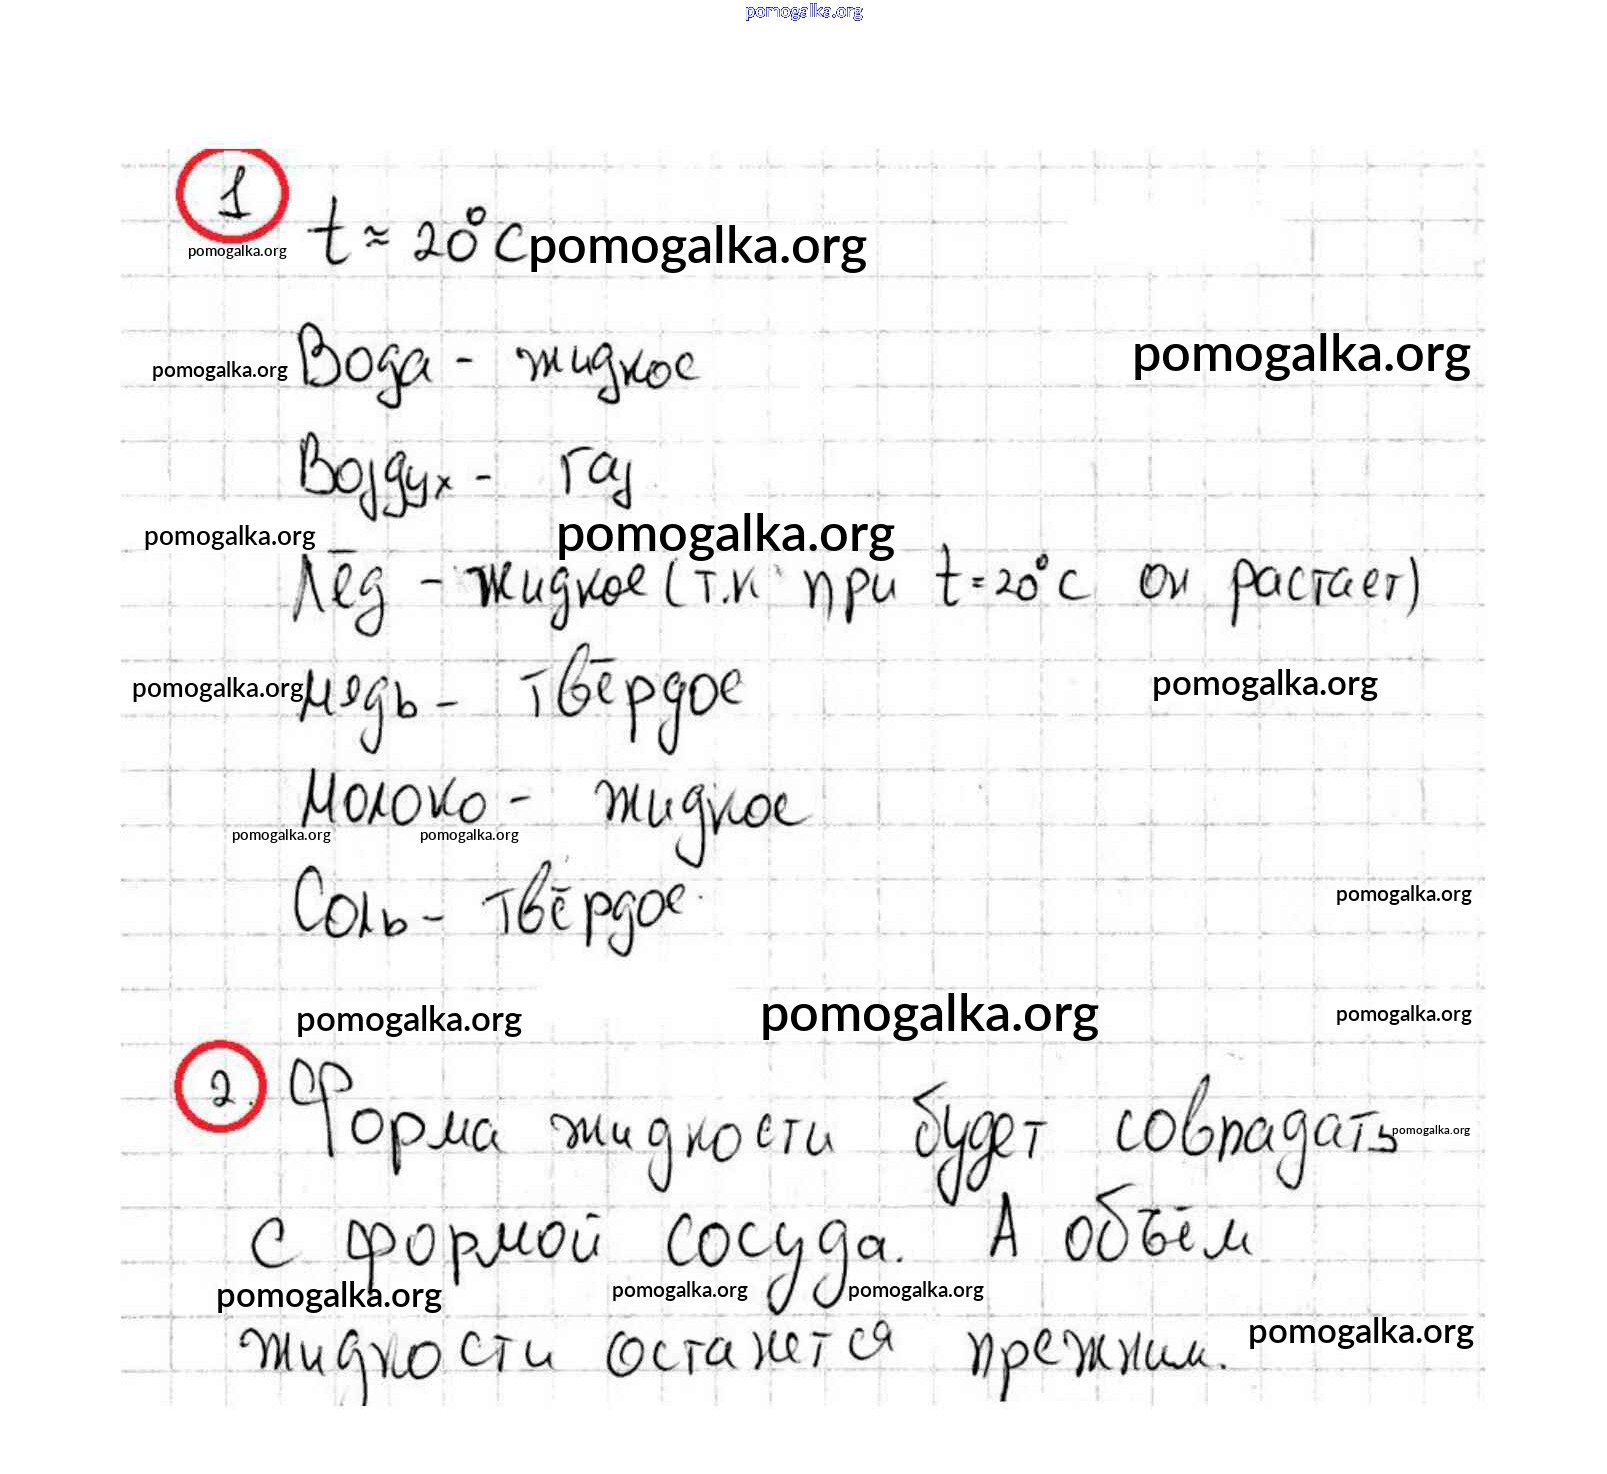 pomogalka.org
1
t ≈ 20°C pomogalka.org
pomogalka.org
pomogalka.org Вода - жидкое pomogalka.org
Воздух - газ
pomogalka.org pomogalka.org
Лёд - жидкое (т.к при t=20°C он растает)
pomogalka.org медь - твёрдое pomogalka.org
Молоко - жидкое
pomogalka.org pomogalka.org
Соль - твёрдое. pomogalka.org
pomogalka.org pomogalka.org pomogalka.org
2. Форма жидкости будет совпадать pomogalka.org
с формой сосуда. А объём
pomogalka.org pomogalka.org pomogalka.org
жидкости останется прежним. pomogalka.org